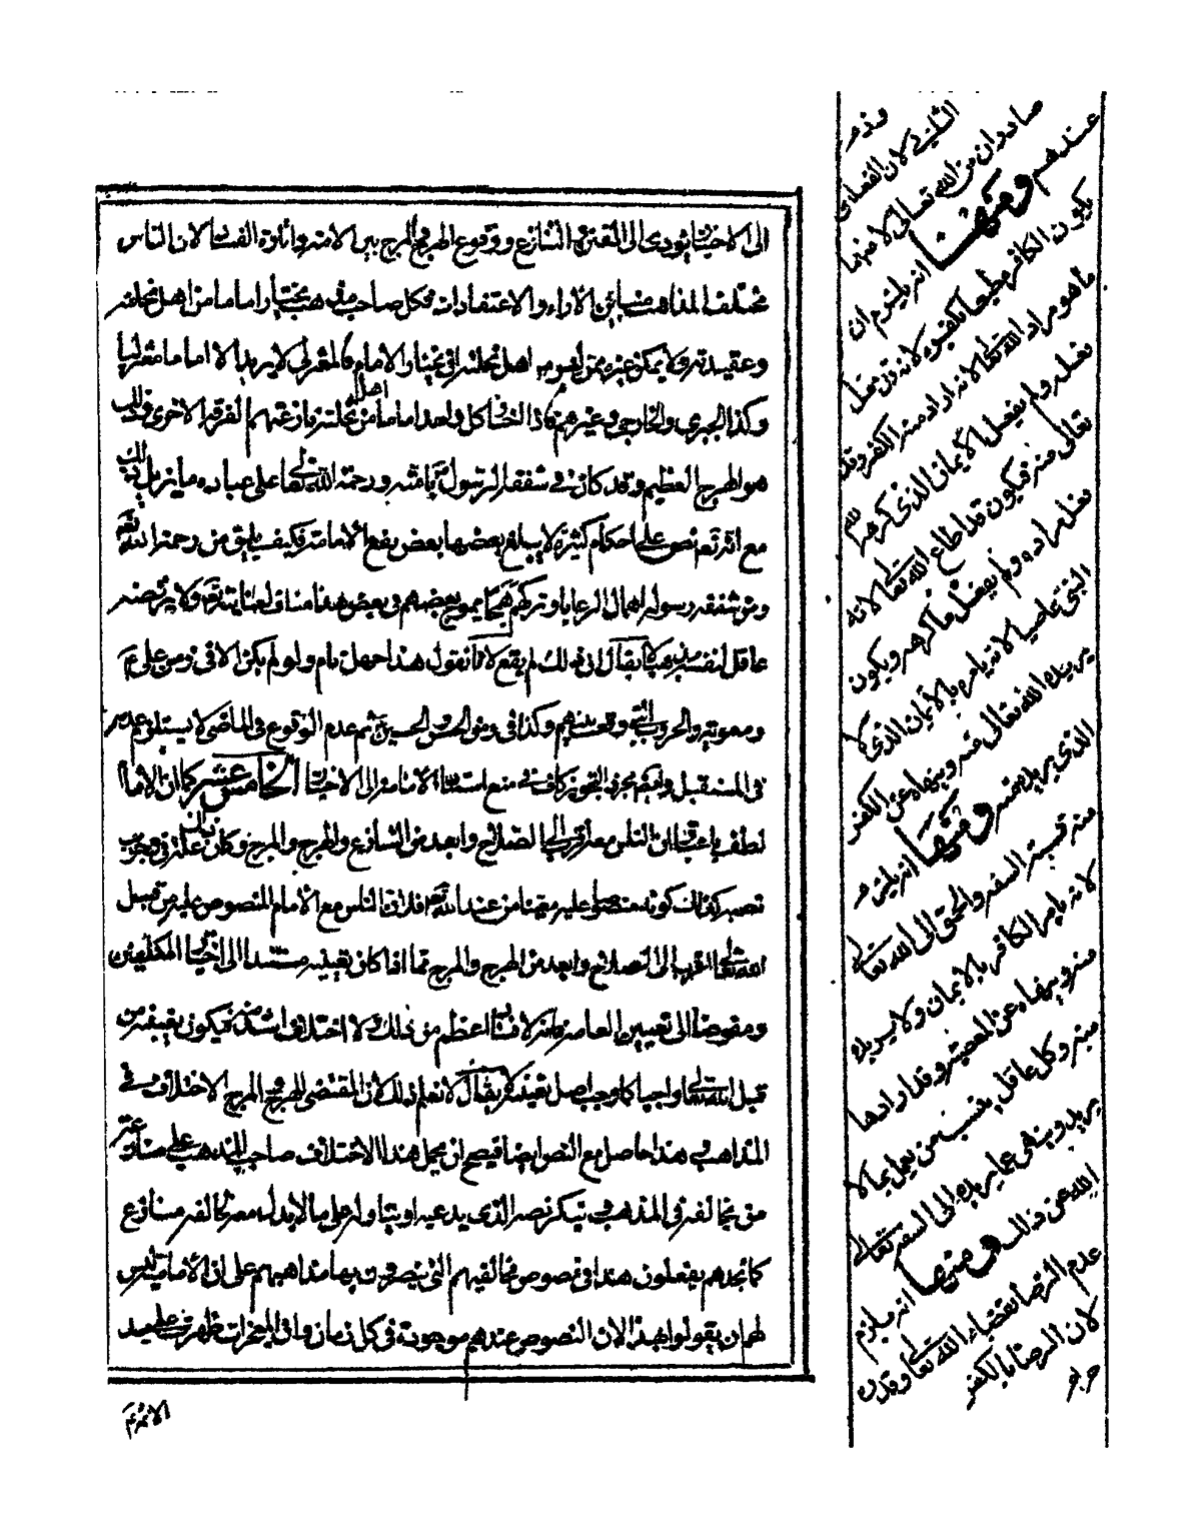 الى الاختيار يؤدى الى الفتن والتنازع ووقوع الهرج والمرج بين الامة واثارة الفساد لان الناس
مختلف المذاهب متباين الآراء والاعتقادات فكل صاحب مذهب يختار اماما من اهل نحلته
وعقيدته ولا يمكن غيره ممن ليس من اهل نحلته ان يختار الامام فالمعتزلى لا يريد الا اماما معتزليا
وكذا الجبرى والخارجى وغيرهم فاذا اختار كل واحد اماما من اهل نحلته نازعته الفرقة الاخرى وذلك
هو الهرج العظيم وقد كان فى شفقة الرسول بامته ورحمة الله تعالى على عباده ما يزيل ذلك
مع انه تعالى نص على احكام كثيرة لا يبلغ بعضها بعض نفع الامامة فكيف يليق من رحمة الله تعالى
ومن شفقة رسوله اهمال الرعايا وتركهم يموج بعضهم فى بعض هذا مناف لعنايته تعالى ولا يرتضيه
عاقل لنفسه لا يقال ان ذلك لم يقع لانا نقول هذا جهل تام ولو لم يكن الا فى زمن على ع
ومعوية والحروب التى وقعت بينهم وكذا فى زمن الحسن والحسين ثم عدم الوقوع فى الماضى لا يستلزم عدمه
فى المستقبل مجرد التجويز كاف فى منع استناد الامامة الى الاختيار الخامس عشر كما ان الامام
لطف باعتبار ان الناس معه اقرب الى الصلاح وابعد من التنازع والهرج والمرج وكان علة فى وجوب
نصبه كذلك كونه منصوصا عليه معينا من عند الله تعالى فان الناس مع الامام المنصوص عليه من قبل
الله تعالى اقرب الى الصلاح وابعد من الهرج والمرج مما اذا كان تعيينه مستندا الى اختيار المكلفين
ومفوضا الى تعيين العامة لا فساد اعظم من ذلك ولا اختلاف اشد منه فيكون تعيينه من
قبل الله تعالى واجبا كما وجب اصل تعيينه لا يقال لا نعلم ذلك لان المقتضى للهرج والمرج الاختلاف فى
المذاهب وهذا حاصل مع النص ايضا فيصح ان يحمل هذا الاختلاف صاحب المذهب على منازعة
من يخالفه فى المذهب فينكر نصه الذى يدعيه او يتاوله على ما لا يدل معه مخالفه منازع
كما نجدهم يفعلون هذا فى نصوص مخالفيهم التى ينصرون بها مذاهبهم على ان الامامية ليس
لهم ان يقولوا بهذا لان النصوص عندهم موجودة فى كل زمان وان المعجزات ظهرت على يد
الائمة ع
الثانى لان القضاء
صادران من الله تعالى لا منهما
عندهم ومنها انه يلزم ان
يكون الكافر مطيعا بكفره لانه قد فعل
ما هو مراد الله تعالى لانه اراد منه الكفر وقد
فعله ولم يفعل الايمان الذى كرهه الله
تعالى منه فيكون قد اطاع الله تعالى لانه
فعل مراده ولم يفعل ما كرهه ويكون
النبى عاصيا لانه يامره بالايمان الذى لا
يريده الله تعالى منه وينهاه عن الكفر
الذى يريده منه ومنها انه يلزم
منه نسبة السفه والحمق الى الله تعالى
لانه يامر الكافر بالايمان ولا يريده
منه وينهاه عن المعصية وقد ارادها
منه وكل عاقل ينسب من يامر بما لا
يريد وينهى عما يريده الى السفه تعالى
الله عن ذلك ومنها انه يلزم
عدم الرضا بقضاء الله تعالى وقدره
لان الرضا بالكفر